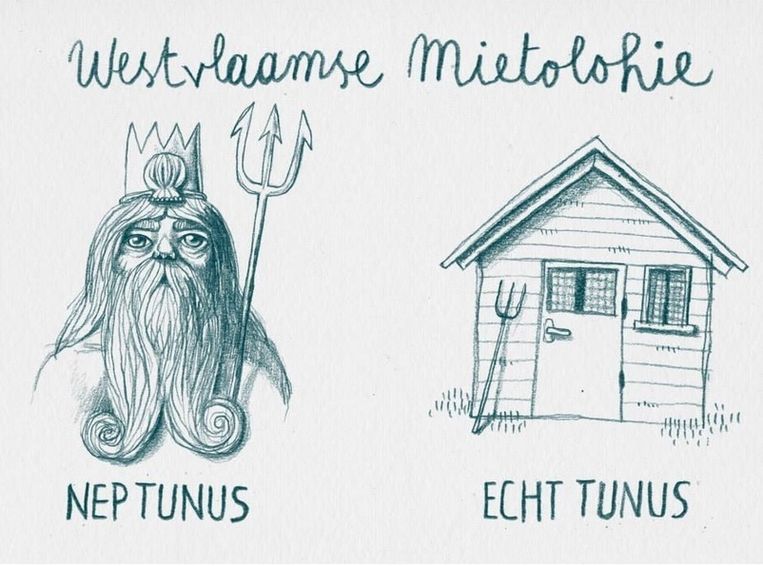 Westvlaamse Mietolohie
NEPTUNUS
ECHT TUNUS